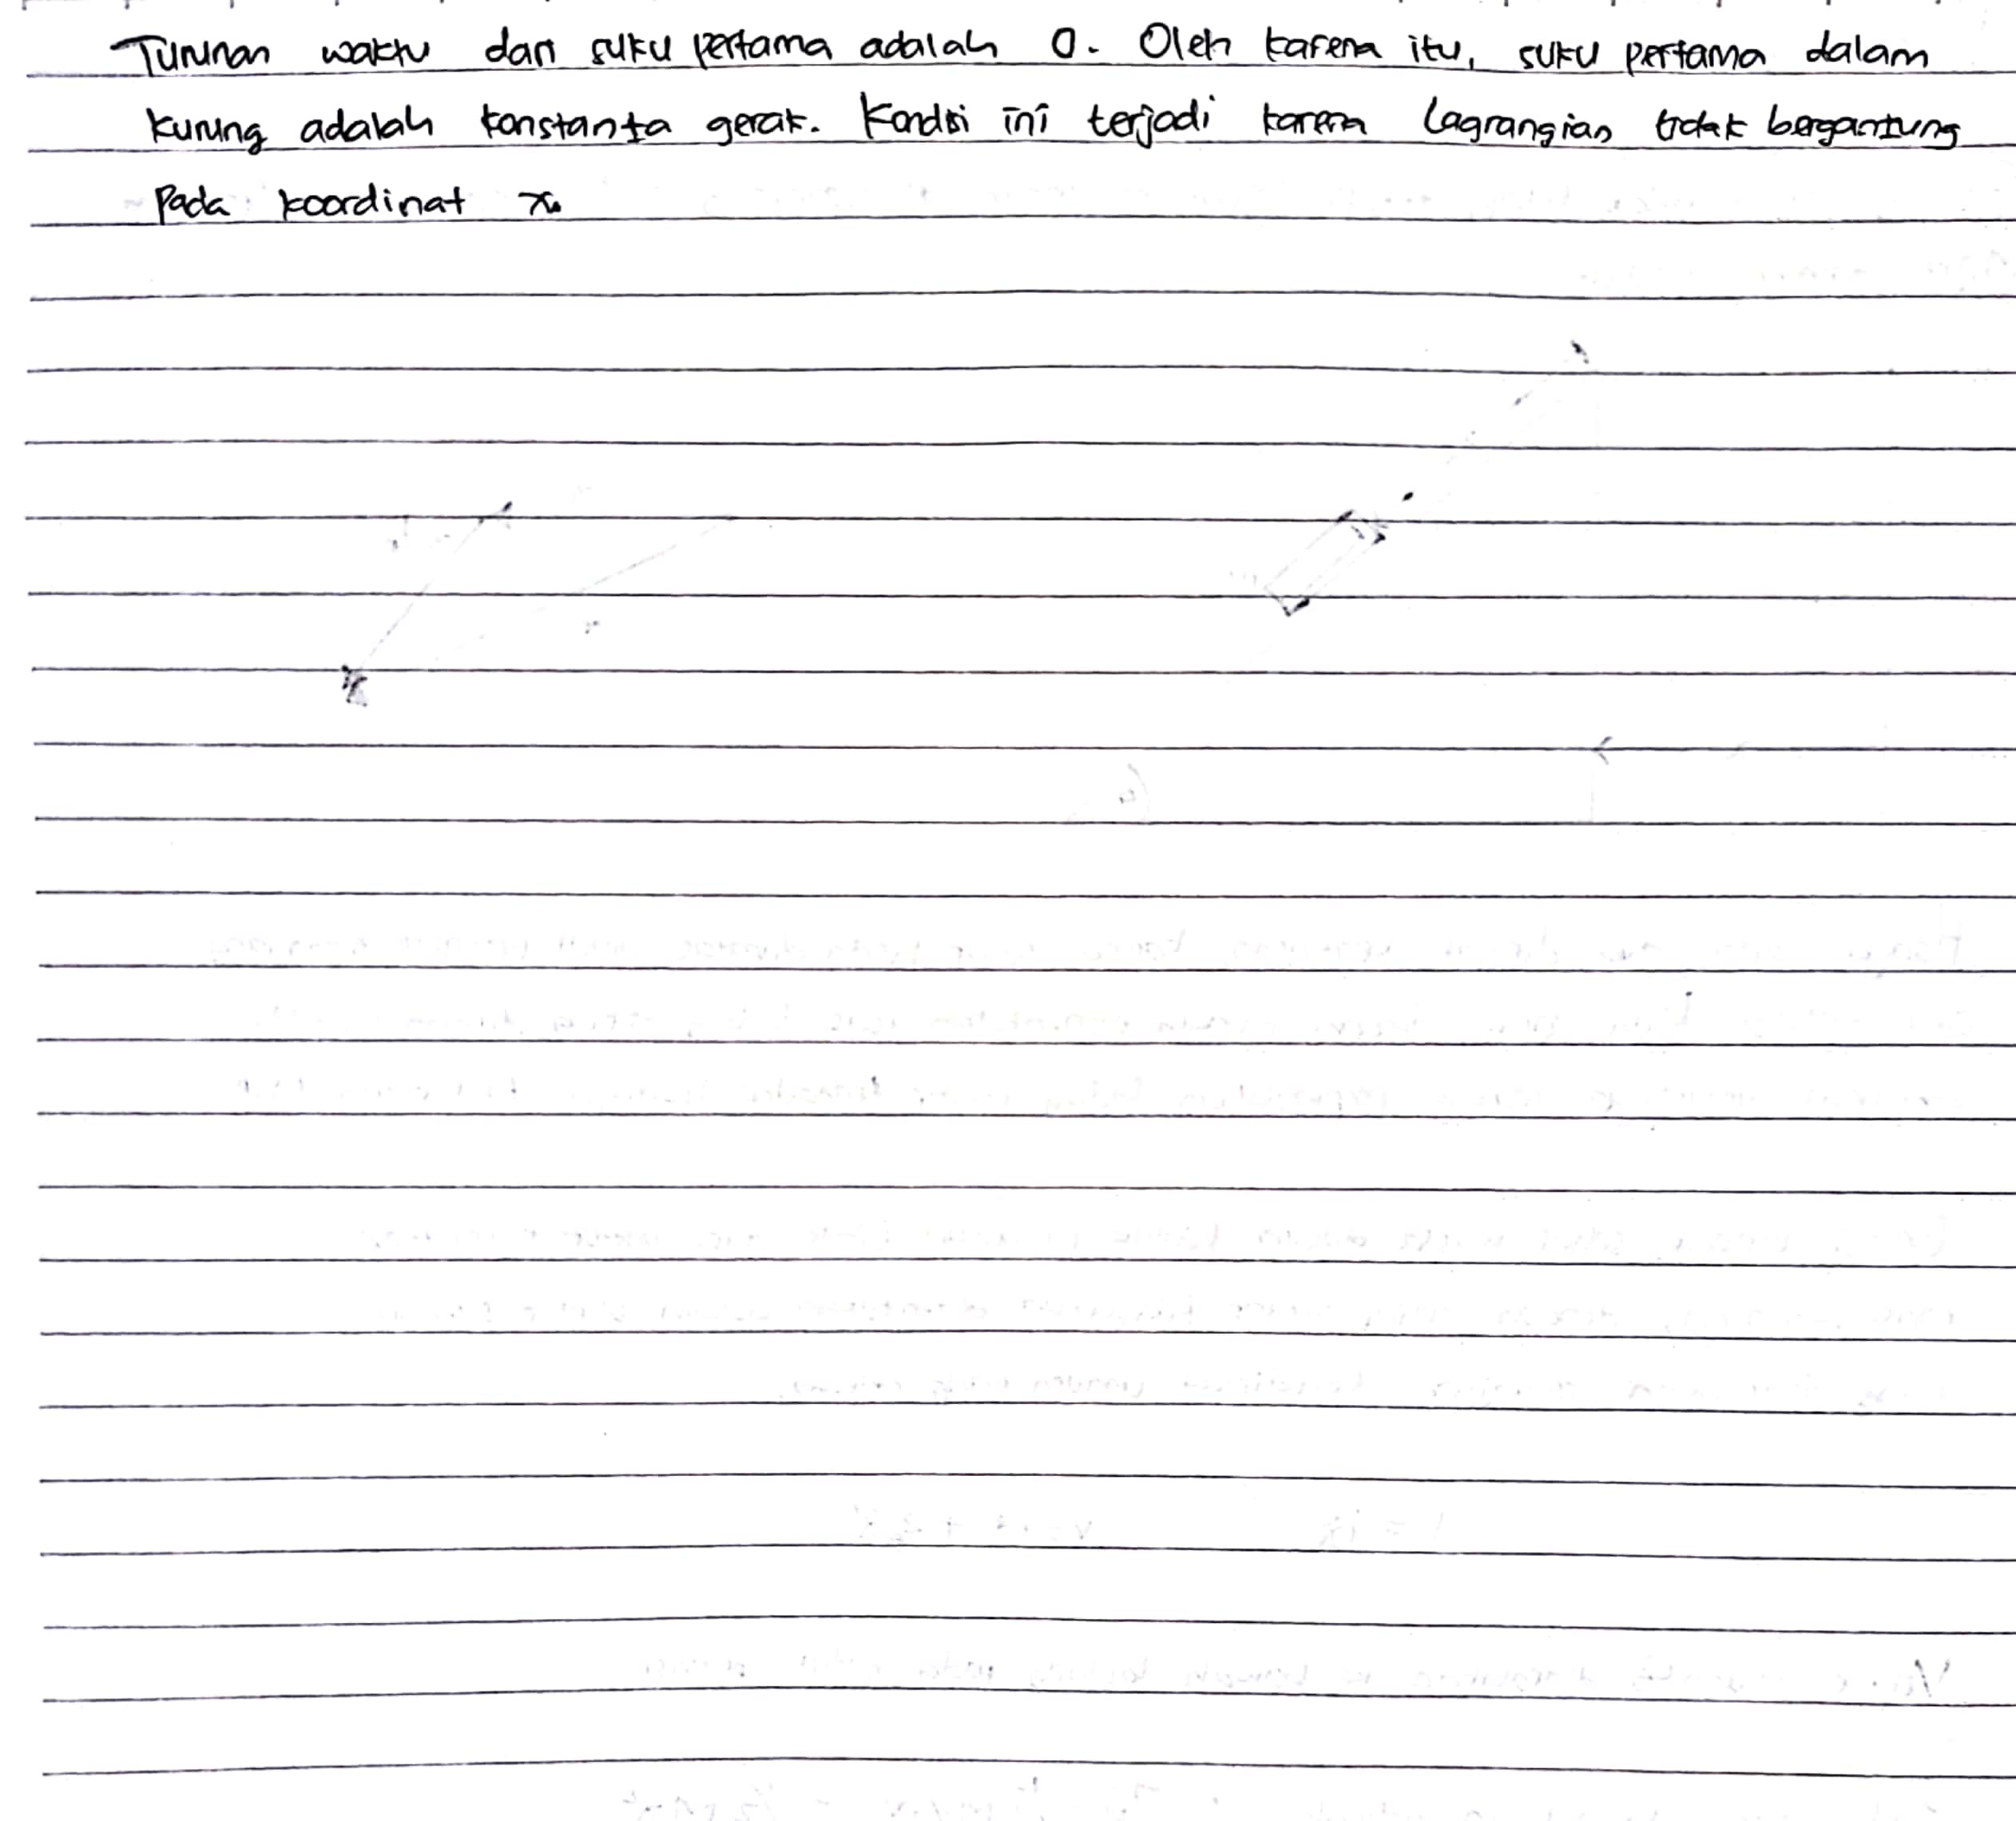 Turunan waktu dari suku pertama adalah 0. Oleh karena itu, suku pertama dalam
kurung adalah konstanta gerak. Kondisi ini terjadi karena Lagrangian tidak bergantung
Pada koordinat x.